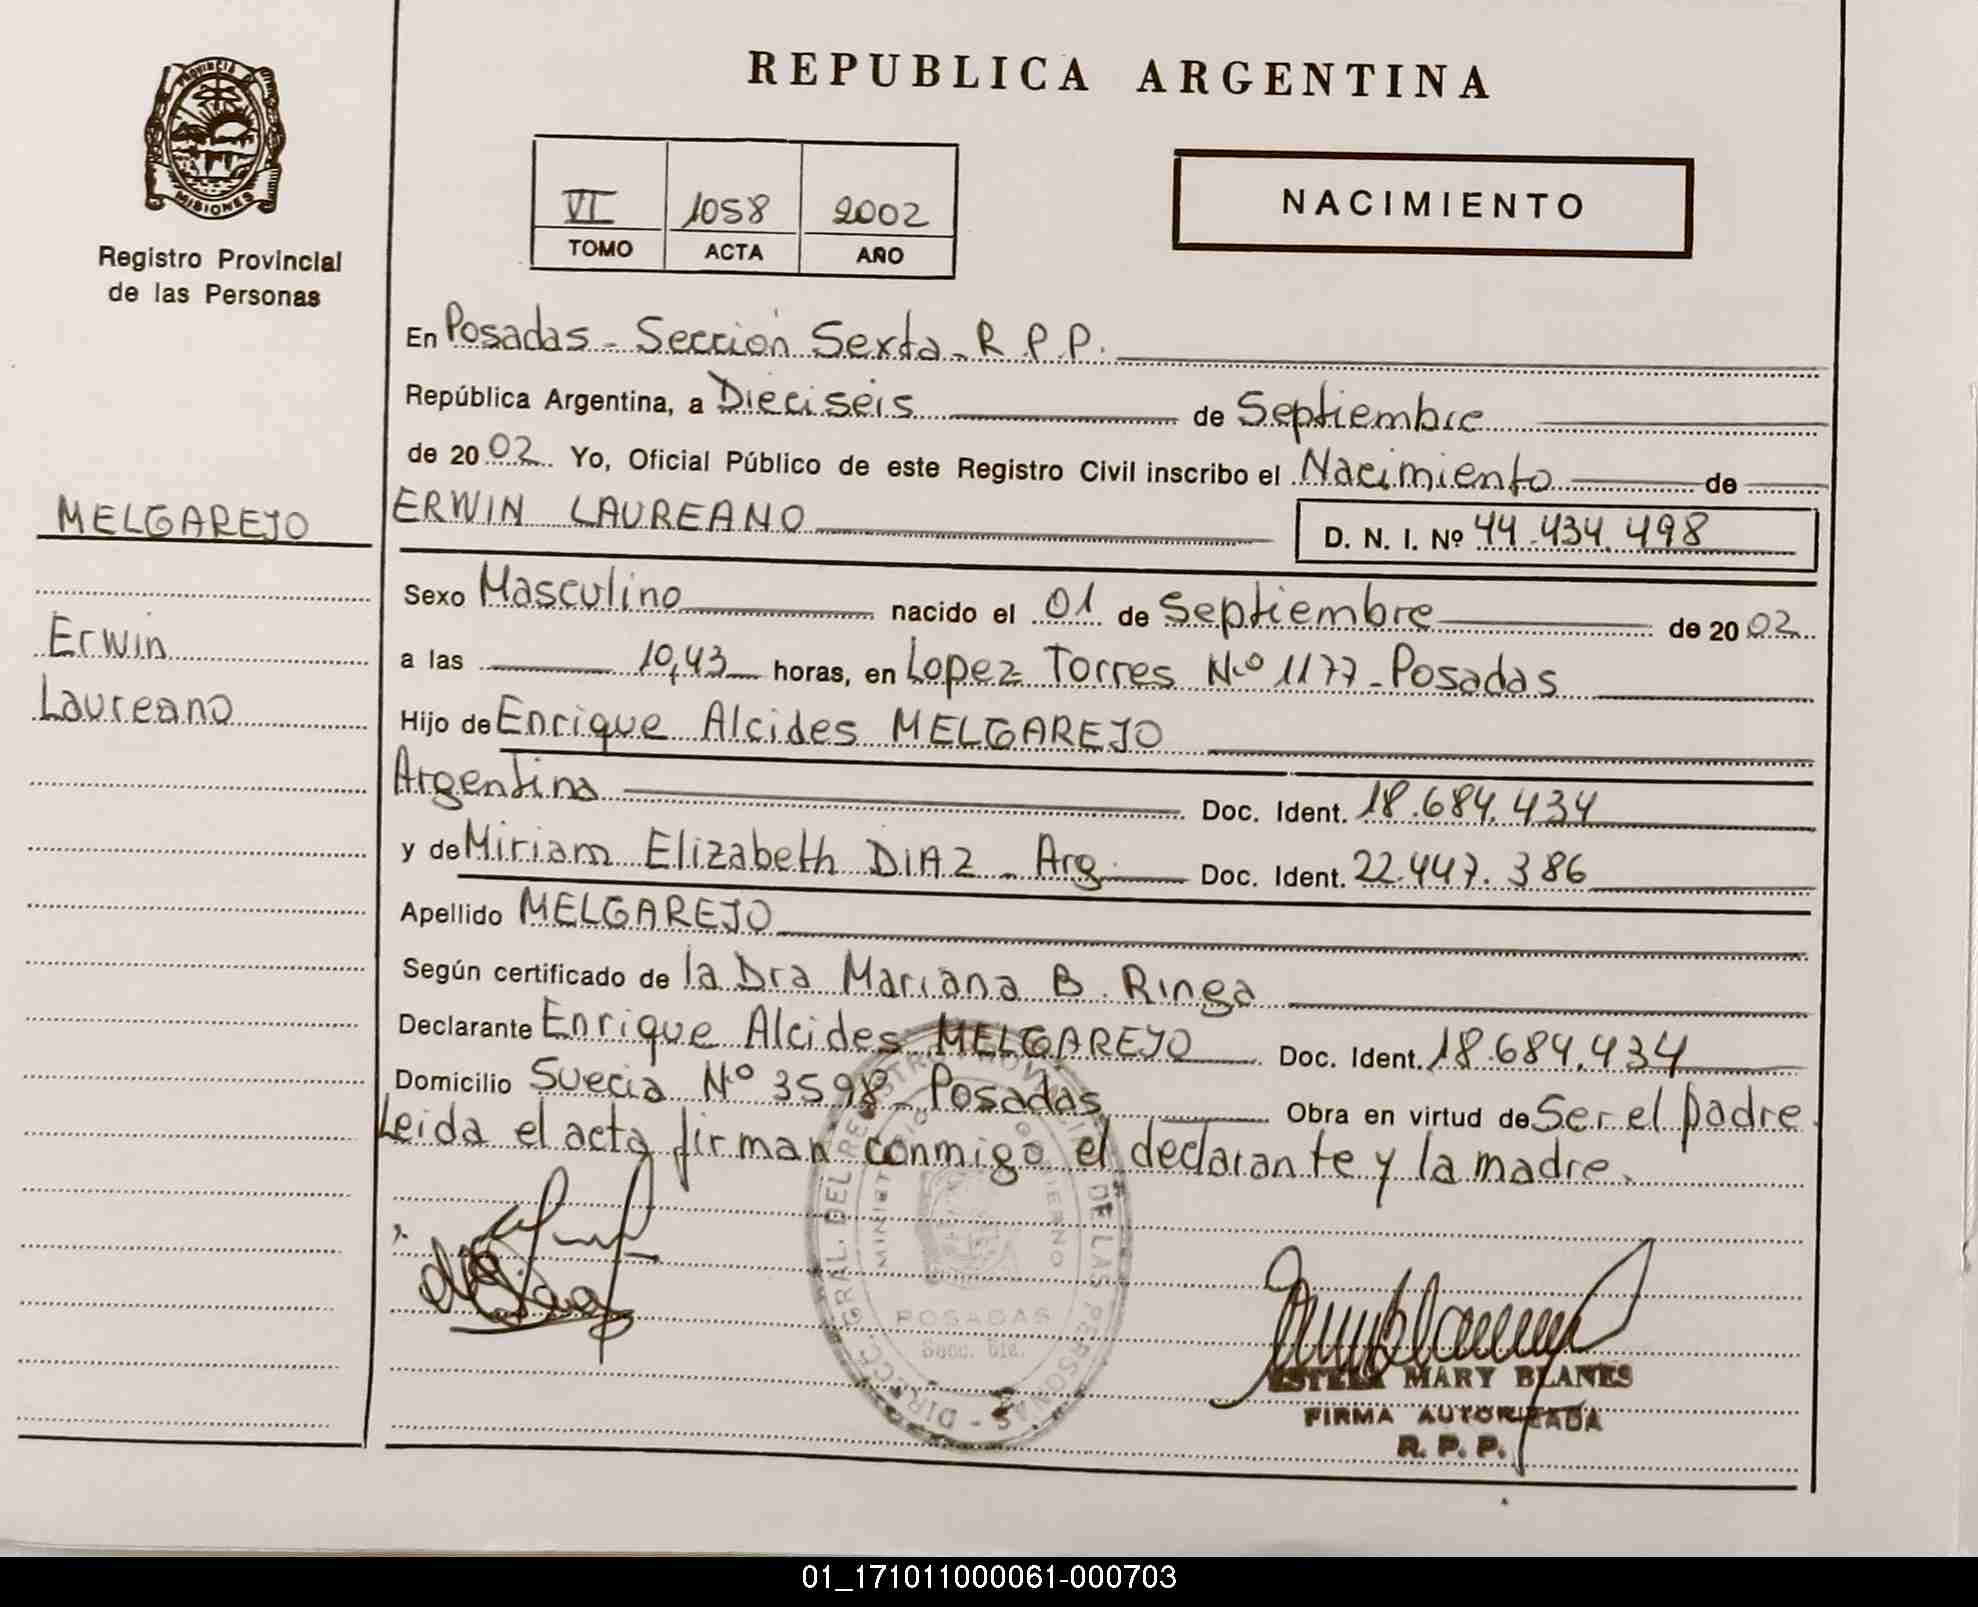 REPUBLICA ARGENTINA
PROVINCIA
MISIONES
Registro Provincial
de las Personas
VI 1058 2002
TOMO ACTA AÑO
NACIMIENTO
En Posadas - Sección Sexta - R.P.P.
República Argentina, a Dieciseis de Septiembre
de 2002. Yo, Oficial Público de este Registro Civil inscribo el Nacimiento de
MELGAREJO
ERWIN LAUREANO
D. N. I. Nº 44.434.498
Sexo Masculino nacido el 01 de Septiembre de 2002
Erwin
a las 10,43 horas, en Lopez Torres Nº 1177 - Posadas
Laureano
Hijo de Enrique Alcides MELGAREJO
Argentina Doc. Ident. 18.684.434
y de Miriam Elizabeth DIAZ - Arg. Doc. Ident. 22.447.386
Apellido MELGAREJO
Según certificado de la Dra Mariana B. Ringa
Declarante Enrique Alcides MELGAREJO Doc. Ident. 18.684.434
Domicilio Suecia Nº 3598 - Posadas Obra en virtud de Ser el padre.
Leida el acta firman conmigo el declarante y la madre.
DIRECC. GRAL. DEL REGISTRO PROVINCIAL DE LAS PERSONAS
POSADAS
Secc. 6ta.
ESTELA MARY BLANES
FIRMA AUTORIZADA
R. P. P.
01_171011000061-000703